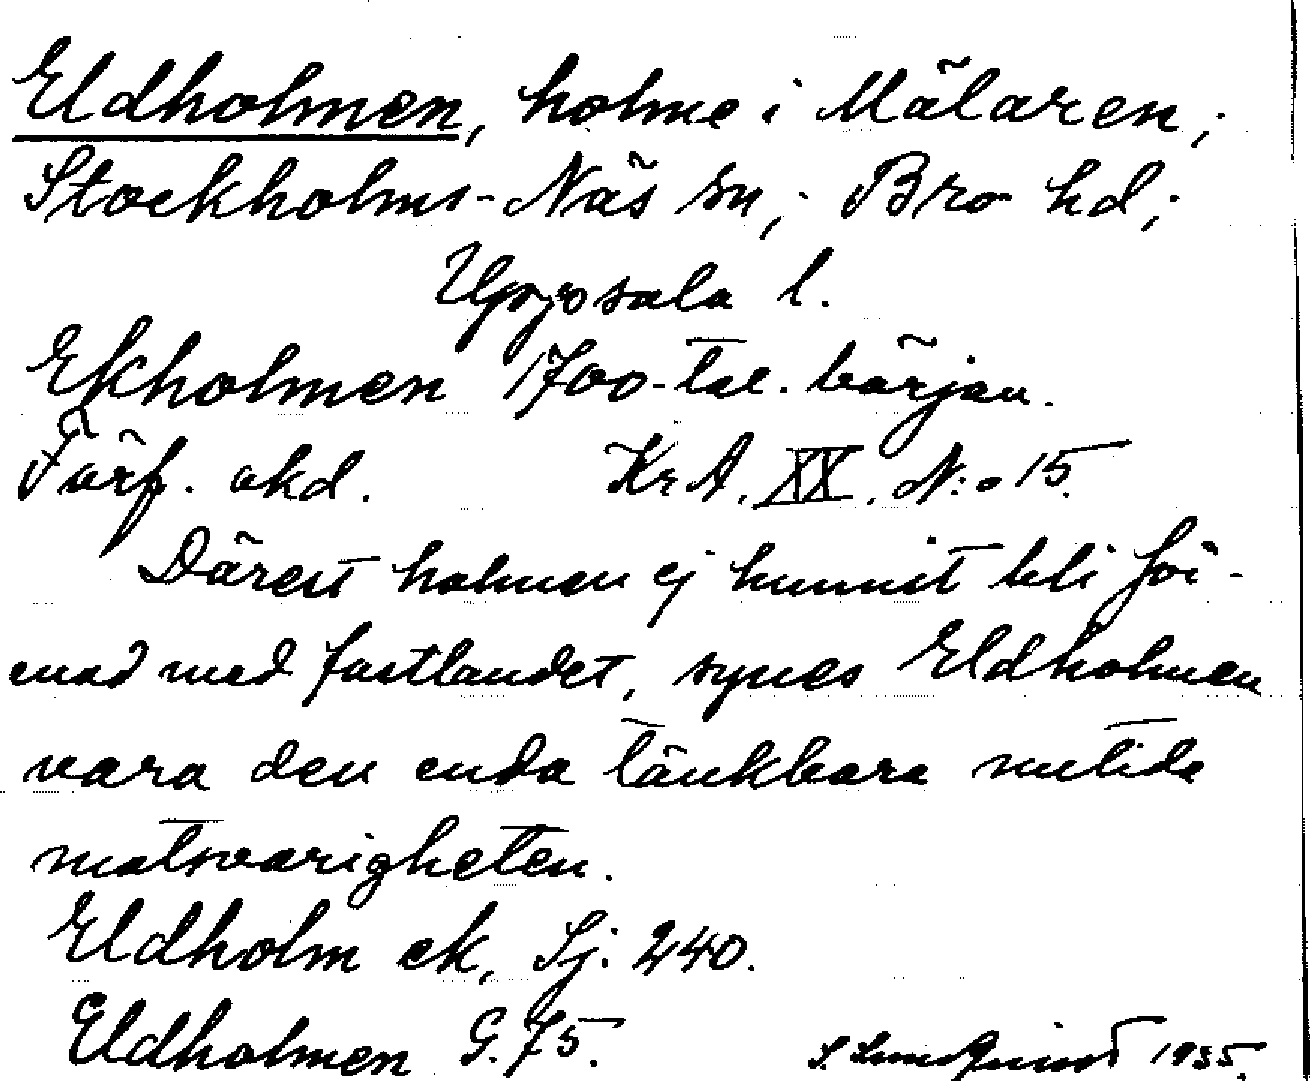 Eldholmen, holme i Mälaren;
Stockholms-Näs sn; Bro hd;
Uppsala l.
Ekholmen 1700-tal. början.
Förf. okd. Kr A. XX. N:o 15.
Därest holmen ej hunnit bli för-
enad med fastlandet, synes Eldholmen
vara den enda tänkbara nutida
motsvarigheten.
Eldholm ek, Sj. 240.
Eldholmen G. 75. S. Lundquist 1935.